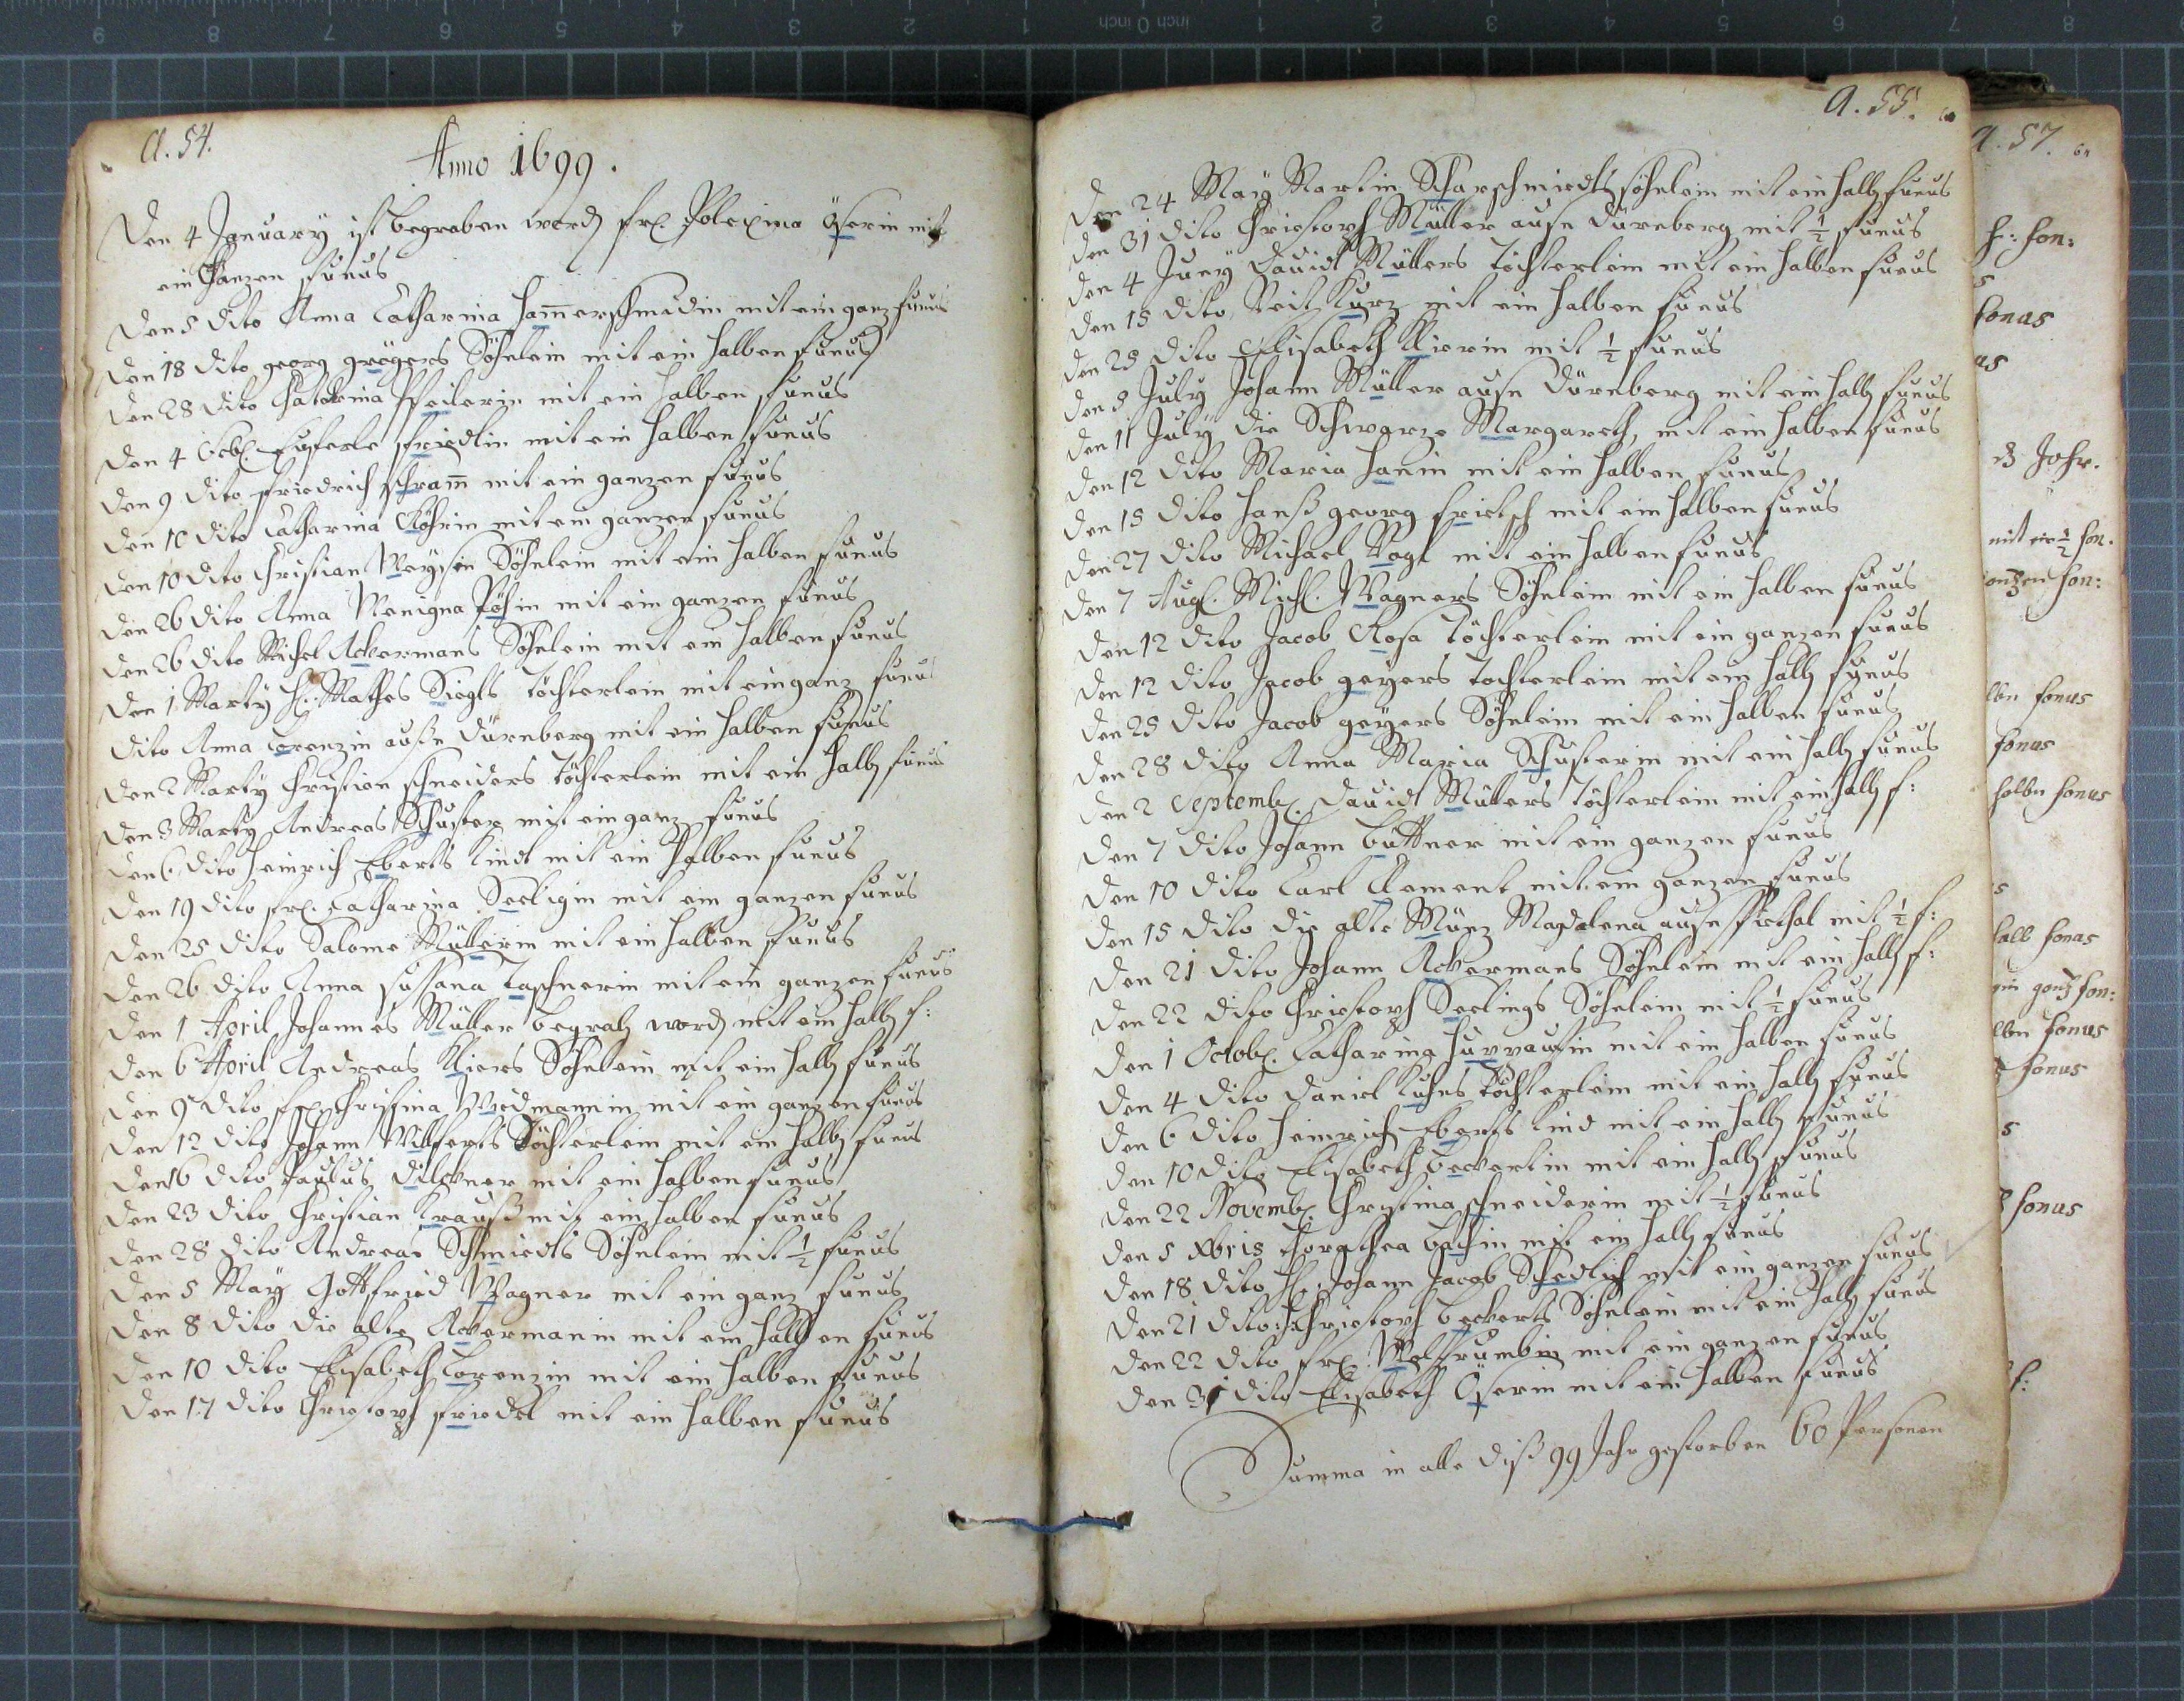 A. 54.
Anno 1699.
Den 4 January ist begraben word fr. Polexina Öserin mit
ein Ganzen funus
Den 5 dito Anna Catharina Ham̅erschmidin mit ein ganz funus
Den 18 dito georg grögers Söhnlein mit ein halben funus
Den 28 dito Chatarina Pfeilerin mit ein halben funus
Den 4 Feb. friedlin mit ein halben funus
Den 9 dito friedrich schram̅ mit ein ganzen funus
Den 10 dito Catharina Röhrin mit ein ganzen funus
Den 10 dito Christian Söhnlein mit ein halben funus
Den 26 dito Anna mit ein ganzen funus
Den 26 dito Michel Ackermans Söhnlein mit ein halben funus
Den 1 Marty H. Mathes Siegls töchterlein mit ein ganz funus
Dito Anna Lorenzin außn Dürnberg mit ein halben funus
Den 2 Marty Christian schneiders töchterlein mit ein halb funus
Den 3 Marty Andreas Schuster mit ein ganz funus
Den 6 dito Heinrich Eberts Kindt mit ein halben funus
Den 19 dito fr. Catharina Seeligin mit ein ganzen funus
Den 25 dito Salome Müllerin mit ein halben funus
Den 26 dito Anna susana taschnerin mit ein ganzen funus
Den 1 April Johannes Müller begrab word mit ein halb f:
Den 6 April Andreas Kliers Söhnlein mit ein halb funus
Den 9 dito fr. Christina Widmannin mit ein ganzen funus
Den 12 dito Johann Wilferts töchterlein mit ein halb funus
Den 16 dito Paulus mit ein halben funus
Den 23 dito Christian Krauß mit ein halben funus
Den 28 dito Andreas Schmiedts Söhnlein mit ½ funus
Den 5 May Gottfried Wagner mit ein ganz funus
Den 8 dito die alte Ackermanin mit ein halben funus
Den 10 dito Elisabeth Lorenzin mit ein halben funus
Den 17 dito Christoph friedel mit ein halben funus
A. 55.
Den 24 May Martin Scharschmiedts söhnlein mit ein halb funus
Den 31 dito Christoph Müller ausn Dürnberg mit ½ funus
Den 4 Juny Dauidt Müllers töchterlein mit ein halben funus
Den 15 dito Veit Kurz mit ein halben funus
Den 25 dito Elisabeth Klierin mit ½ funus
Den 5 July Johann Müller ausn Dürnberg mit ein halb funus
Den 11 July die Schwarze Margareth, mit ein halben funus
Den 12 dito Maria Hanin mit ein halben funus
Den 15 dito Hanß georg frietsch mit ein halben funus
Den 27 dito Michael Vogl mit ein halben funus
Den 7 Aug. Mich. Wagners Söhnlein mit ein halben funus
Den 12 dito Jacob Rosa töchterlein mit ein ganzen funus
Den 12 dito Jacob geyers tochterlein mit ein halb funus
Den 25 dito Jacob geyers Söhnlein mit ein halben funus
Den 28 dito Anna Maria Schusterin mit ein halb funus
Den 2 Septemb. Dauidt Müllers töchterlein mit ein halb f:
Den 7 dito Johann büttner mit ein ganzen funus
Den 10 dito Carl Clement mit ein ganzen funus
Den 15 dito die alte Münz Magdalena ausn mit ½ f:
Den 21 dito Johann Ackermans Söhnlein mit ein halb f:
Den 22 dito Christoph Seelings Söhnlein mit ½ funus
Den 1 Octob. Catharina mit ein halben funus
Den 4 dito Daniel Kuhns töchterlein mit ein halb funus
Den 6 dito Heinrich Eberts Kind mit ein halb funus
Den 10 dito Elisabeth beckertin mit ein halb funus
Den 22 Novemb. Christina schneiderin mit ½ funus
Den 5 Xbris Dorathea bachin mit ein halb funus
Den 18 dito H. Johann Jacob Schedlich mit ein ganzen funus
Den 21 dito: Christoph beckerts Söhnlein mit ein halb funus
Den 22 dito fr. mit ein ganzen funus
Den 31 dito Elisabeth Öserin mit ein halben funus
Summa in alle diß 99 Jahr gestorben 60 Personen
A. 57.